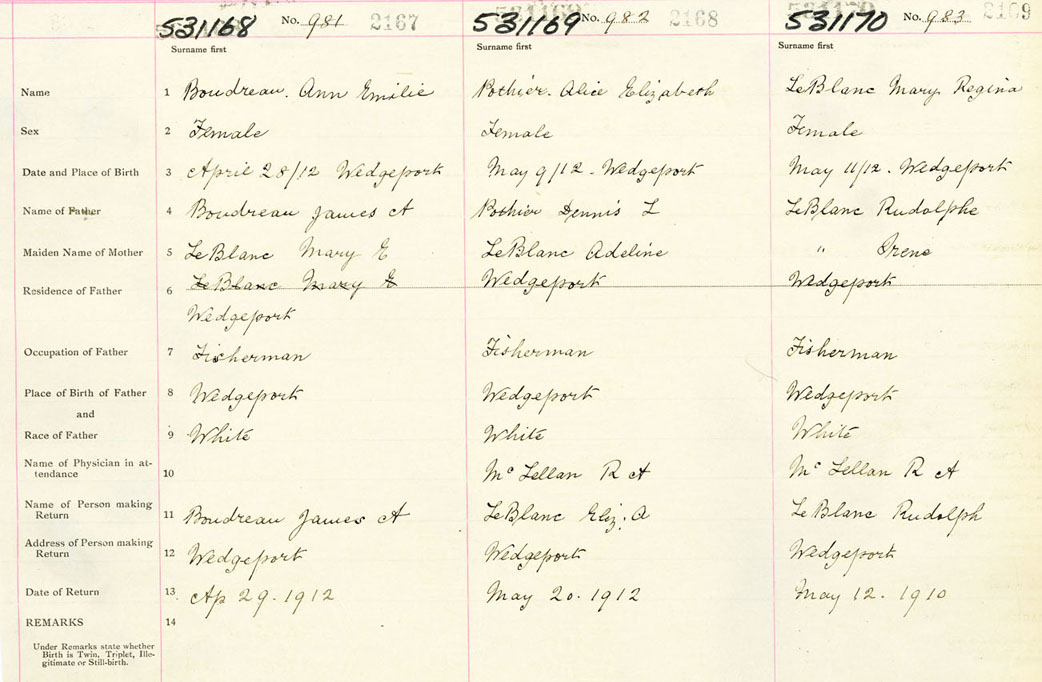 531168 No. 981 2167 531169 No. 982 2168 531170 No. 983 2169
Surname first Surname first Surname first
Name 1 Boudreau. Ann Emilie Pothier. Alice Elizabeth LeBlanc Mary Regina
Sex 2 Female Female Female
Date and Place of Birth 3 April 28/12 Wedgeport May 9/12 - Wedgeport May 11/12 - Wedgeport
Name of Father 4 Boudreau James A Pothier Dennis L LeBlanc Rudolphe
Maiden Name of Mother 5 LeBlanc Mary E LeBlanc Adeline " Irene
Residence of Father 6 LeBlanc Mary E Wedgeport Wedgeport
Wedgeport
Occupation of Father 7 Fisherman Fisherman Fisherman
Place of Birth of Father 8 Wedgeport Wedgeport Wedgeport
and
Race of Father 9 White White White
Name of Physician in at-
tendance 10 Mc Lellan R A Mc Lellan R A
Name of Person making
Return 11 Boudreau James A LeBlanc Eliz. A LeBlanc Rudolph
Address of Person making
Return 12 Wedgeport Wedgeport Wedgeport
Date of Return 13 Ap 29.1912 May 20.1912 May 12.1910
REMARKS 14
Under Remarks state whether
Birth is Twin, Triplet, Ille-
gitimate or Still-birth.